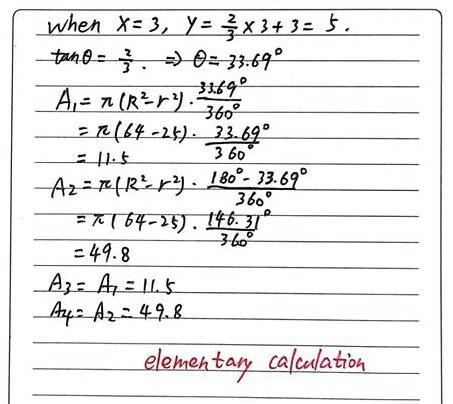 when X=3, Y=⅔×3+3=5.
tanθ=⅔. ⇒ θ=33.69°
A₁=π(R²-r²)·33.69°/360°
=π(64-25)·33.69°/360°
=11.5
A₂=π(R²-r²)·180°-33.69°/360°
=π(64-25)·146.31°/360°
=49.8
A₃=A₁=11.5
A₄=A₂=49.8
elementary calculation